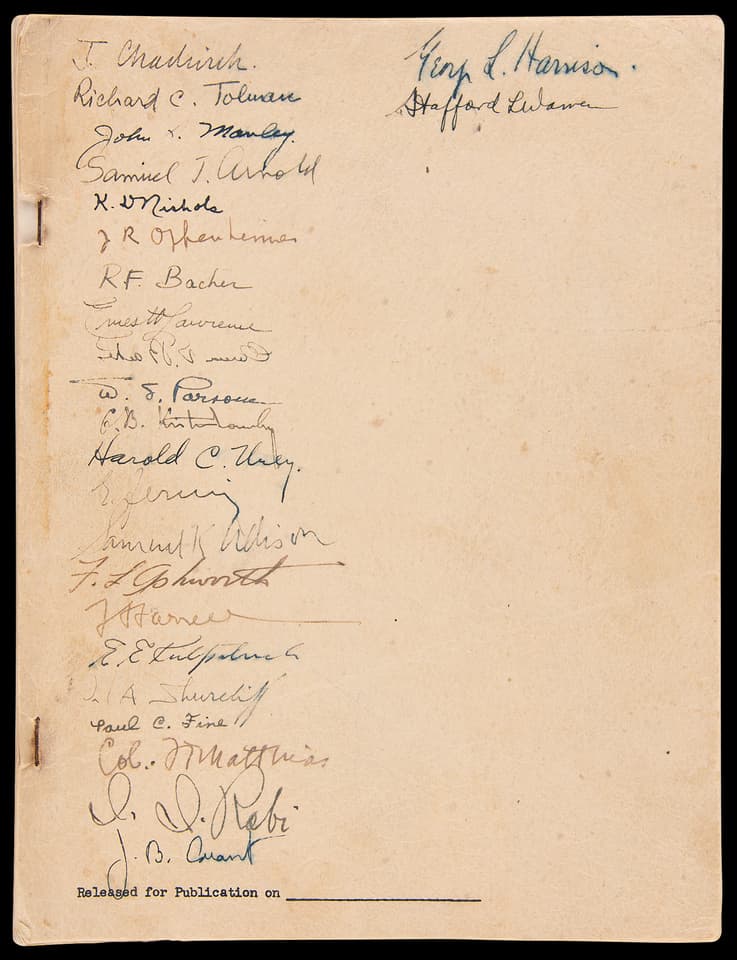 J. Chadwick.
Richard C. Tolman
John H. Manley.
Samuel T. Arnold
K. D Nichols
J R Oppenheimer
R.F. Bacher
Ernest O Lawrence
W. S. Parsons
G. B. Kistiakowsky
Harold C. Urey.
E. Fermi
Samuel K Allison
F. L. Ashworth
E E Kirkpatrick
A Shurcliff
Paul C. Fine
Col. F T Matthias
I. I. Rabi
J. B. Conant
Released for Publication on
George L. Harrison.
Stafford L Warren